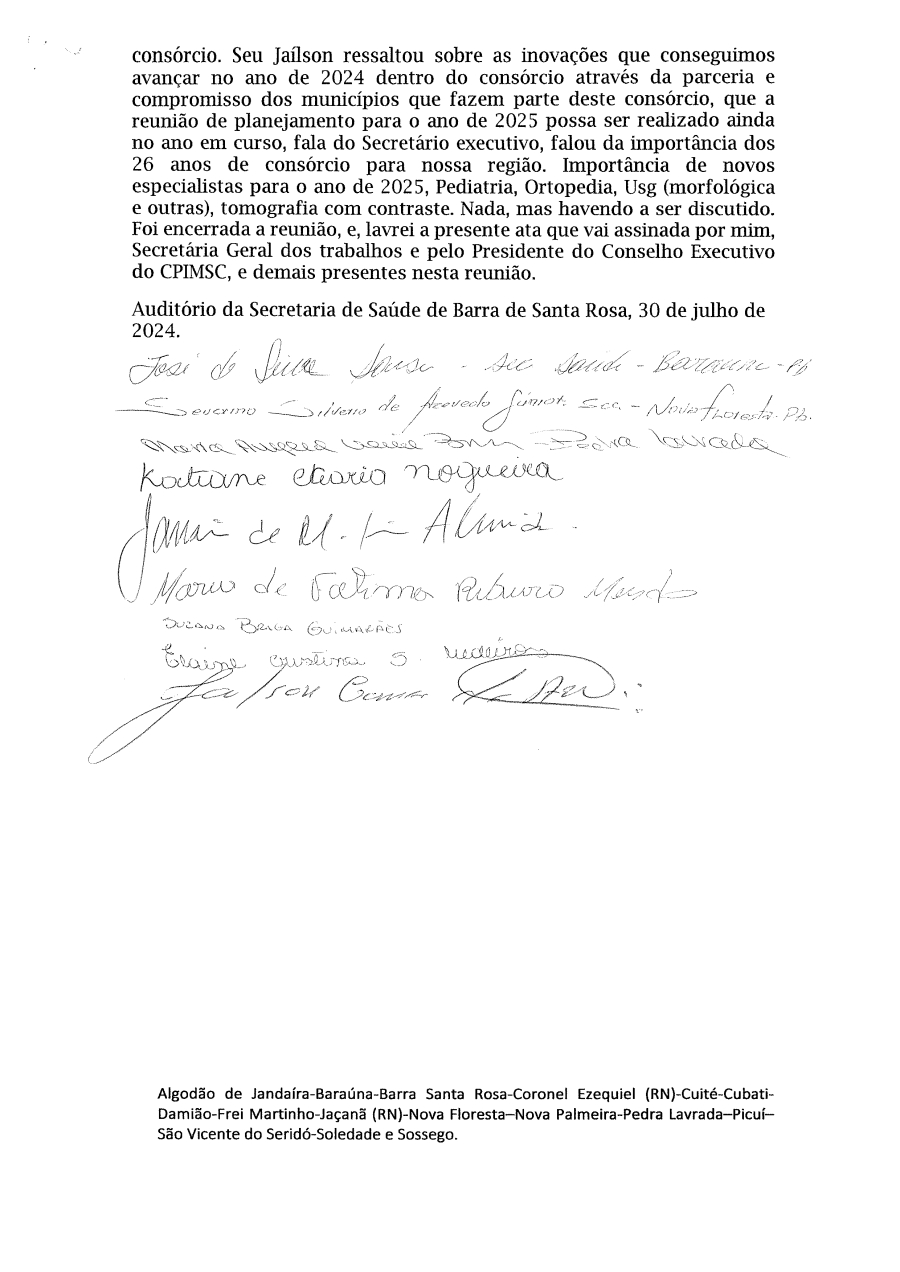 consórcio. Seu Jaílson ressaltou sobre as inovações que conseguimos
avançar no ano de 2024 dentro do consórcio através da parceria e
compromisso dos municípios que fazem parte deste consórcio, que a
reunião de planejamento para o ano de 2025 possa ser realizado ainda
no ano em curso, fala do Secretário executivo, falou da importância dos
26 anos de consórcio para nossa região. Importância de novos
especialistas para o ano de 2025, Pediatria, Ortopedia, Usg (morfológica
e outras), tomografia com contraste. Nada, mas havendo a ser discutido.
Foi encerrada a reunião, e, lavrei a presente ata que vai assinada por mim,
Secretária Geral dos trabalhos e pelo Presidente do Conselho Executivo
do CPIMSC, e demais presentes nesta reunião.
Auditório da Secretaria de Saúde de Barra de Santa Rosa, 30 de julho de
2024.
José da Silva Sousa - sec saúde - Baraúna - Pb
Severino de Azevedo Júnior. Sec. - Nova Floresta. Pb.
Maria - Pedra Lavrada
Katiane Maria Nogueira
de M. Almeida
Maria de Fatima Ribeiro
Suzana Braga Guimarães
Elaine Cristina S. Medeiros
Jailson Gomes
Algodão de Jandaíra-Baraúna-Barra Santa Rosa-Coronel Ezequiel (RN)-Cuité-Cubati-
Damião-Frei Martinho-Jaçanã (RN)-Nova Floresta–Nova Palmeira-Pedra Lavrada–Picuí–
São Vicente do Seridó-Soledade e Sossego.